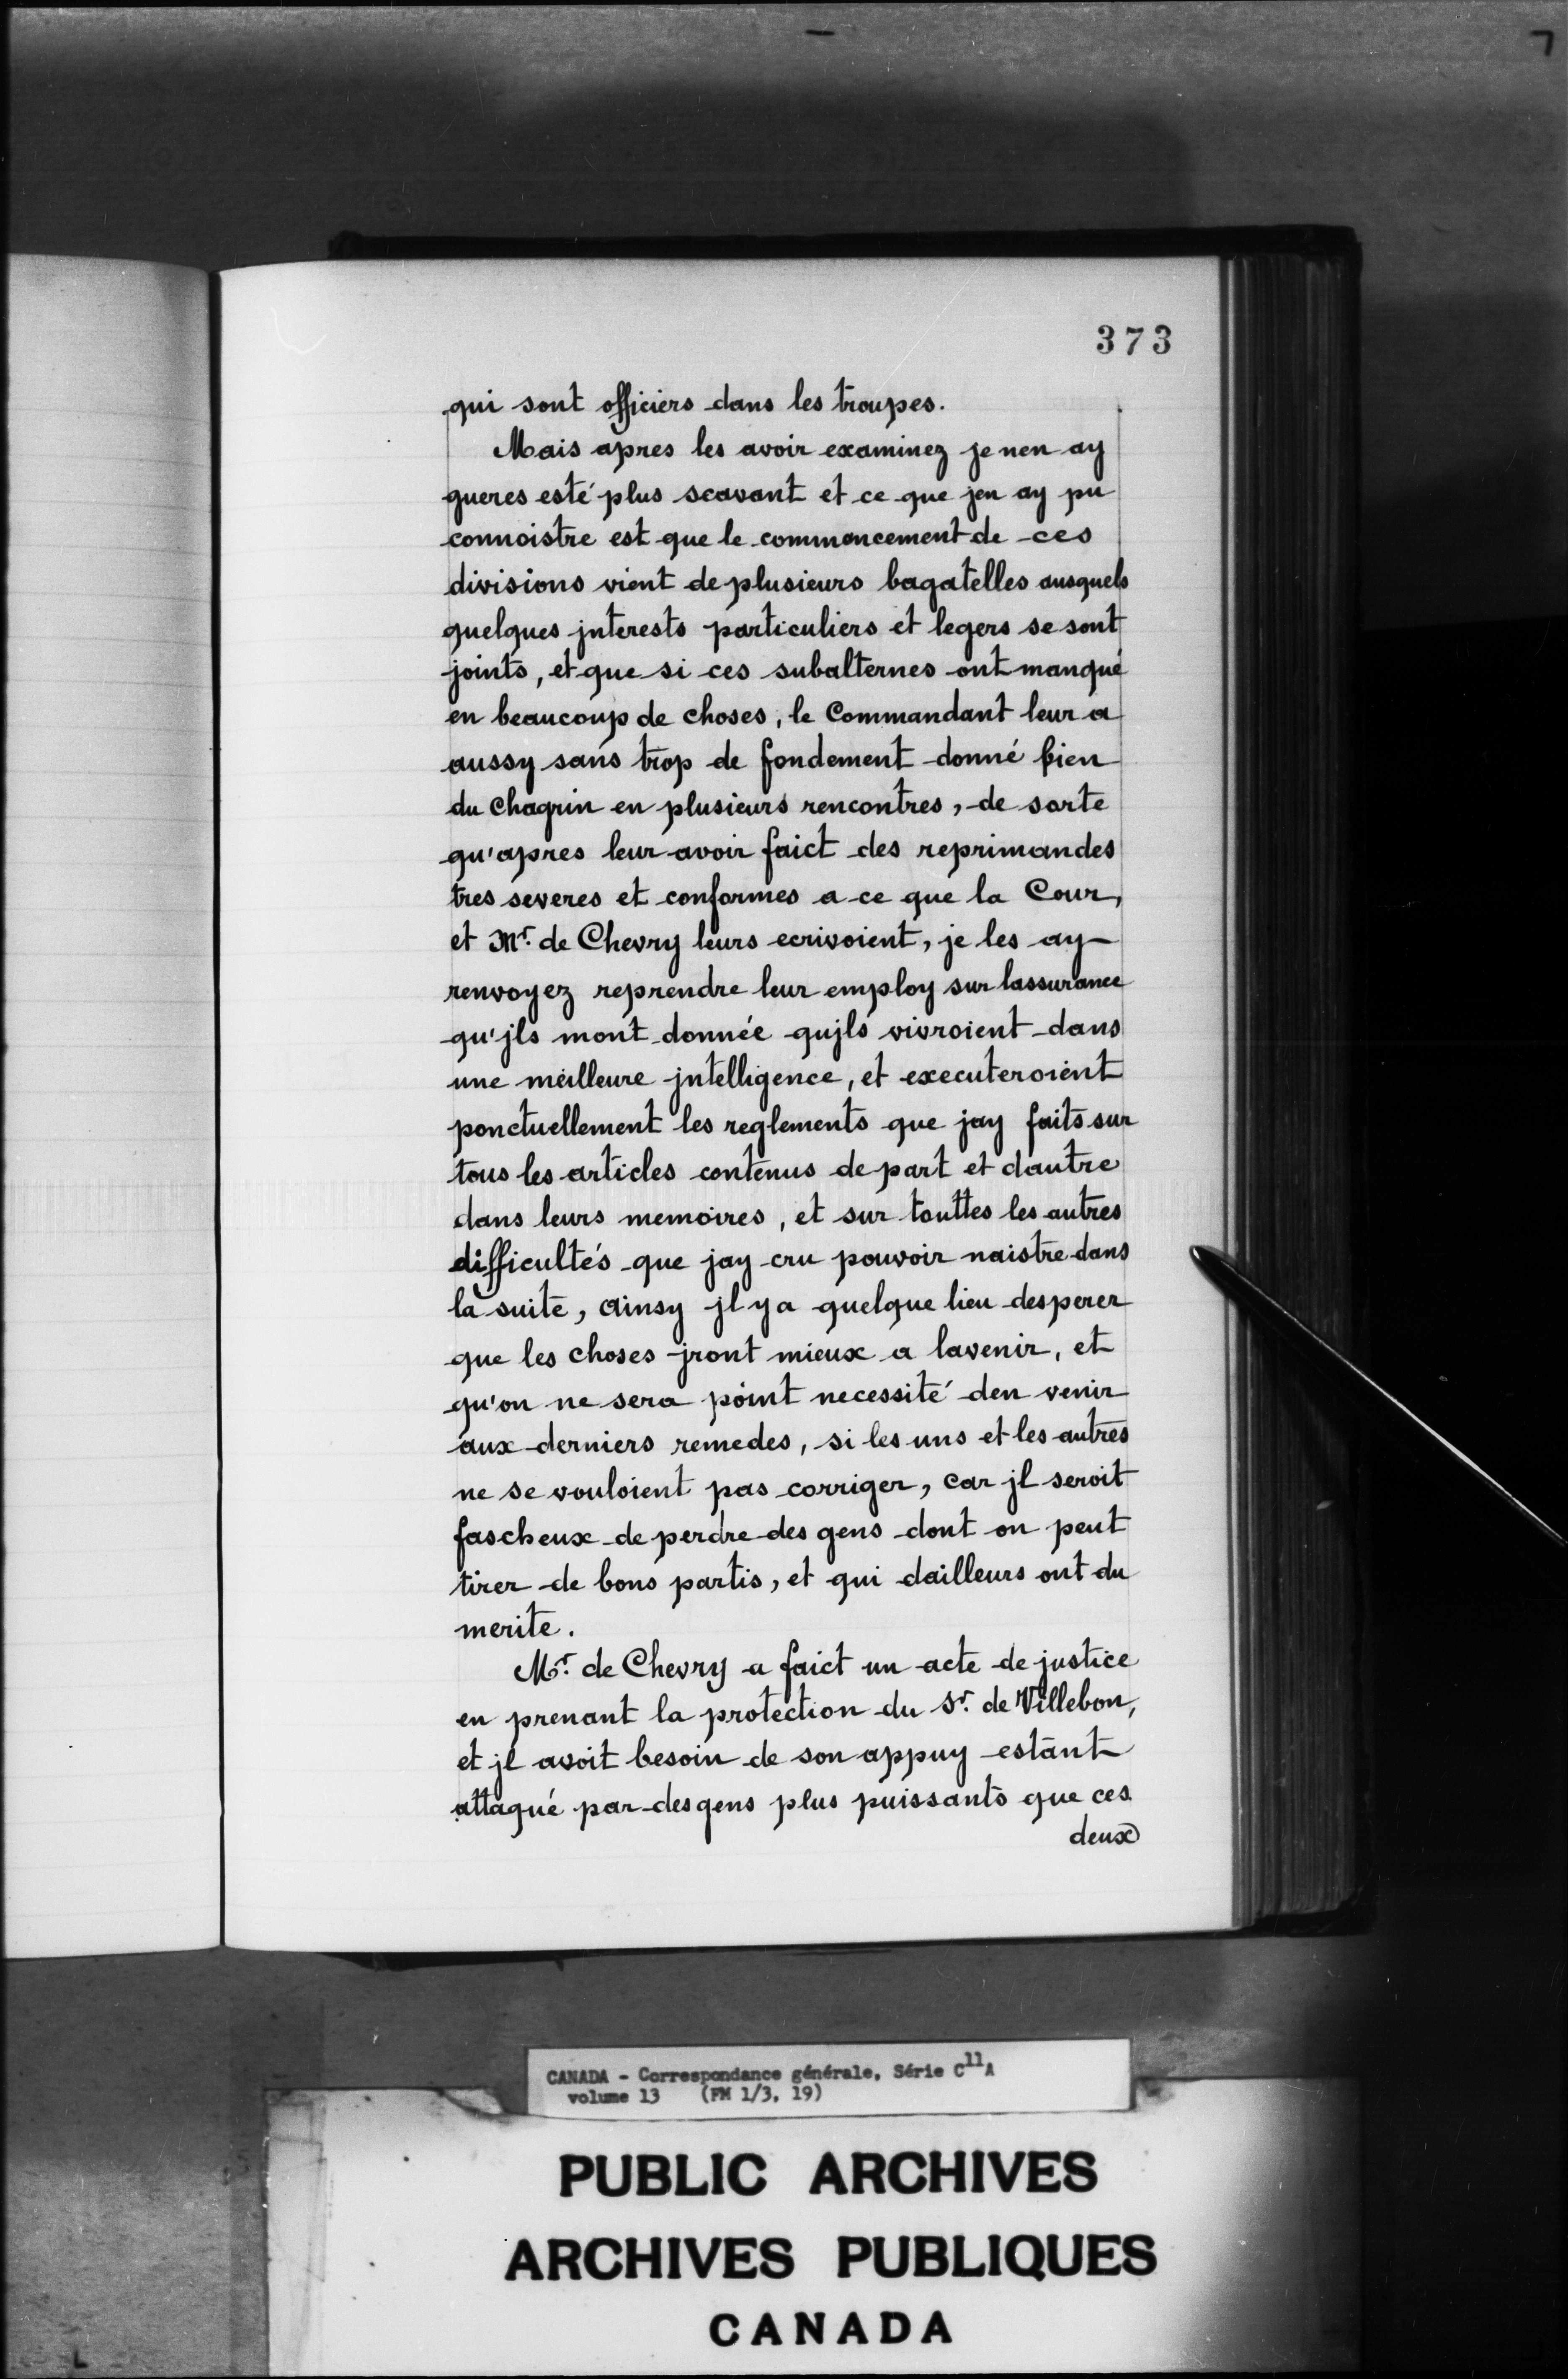 373
qui sont officiers dans les troupes.
Mais apres les avoir examinez je nen ay
gueres esté plus scavant et ce que jen ay pu
connoistre est que le commencement de ces
divisions vient de plusieurs bagatelles ausquels
quelques jnterests particuliers et legers se sont
joints, et que si ces subalternes ont manqué
en beaucoup de choses, le Commandant leur a
aussy sans trop de fondement donné bien
du Chagrin en plusieurs rencontres, de sorte
qu'apres leur avoir faict des reprimandes
tres severes et conformes a ce que la Cour,
et Mr. de Chevry leurs ecrivoient, je les ay
renvoyez reprendre leur employ sur lassurance
qu'jls mont donnée qujls vivroient dans
une meilleure jntelligence, et executeroient
ponctuellement les reglements que jay faits sur
tous les articles contenus de part et dautre
dans leurs memoires, et sur touttes les autres
difficultés que jay cru pouvoir naistre dans
la suite, ainsy jl y a quelque lieu desperer
que les choses jront mieux a lavenir, et
qu'on ne sera point necessité den venir
aux derniers remedes, si les uns et les autres
ne se vouloient pas corriger, car jl seroit
fascheux de perdre des gens dont on peut
tirer de bons partis, et qui dailleurs ont du
merite.
Mr. de Chevry a faict un acte de justice
en prenant la protection du Sr. de Villebon,
et jl avoit besoin de son appuy estant
attaqué par des gens plus puissants que ces
deux
CANADA - Correspondance générale, Série C11A
volume 13 (FM 1/3, 19)
PUBLIC ARCHIVES
ARCHIVES PUBLIQUES
CANADA